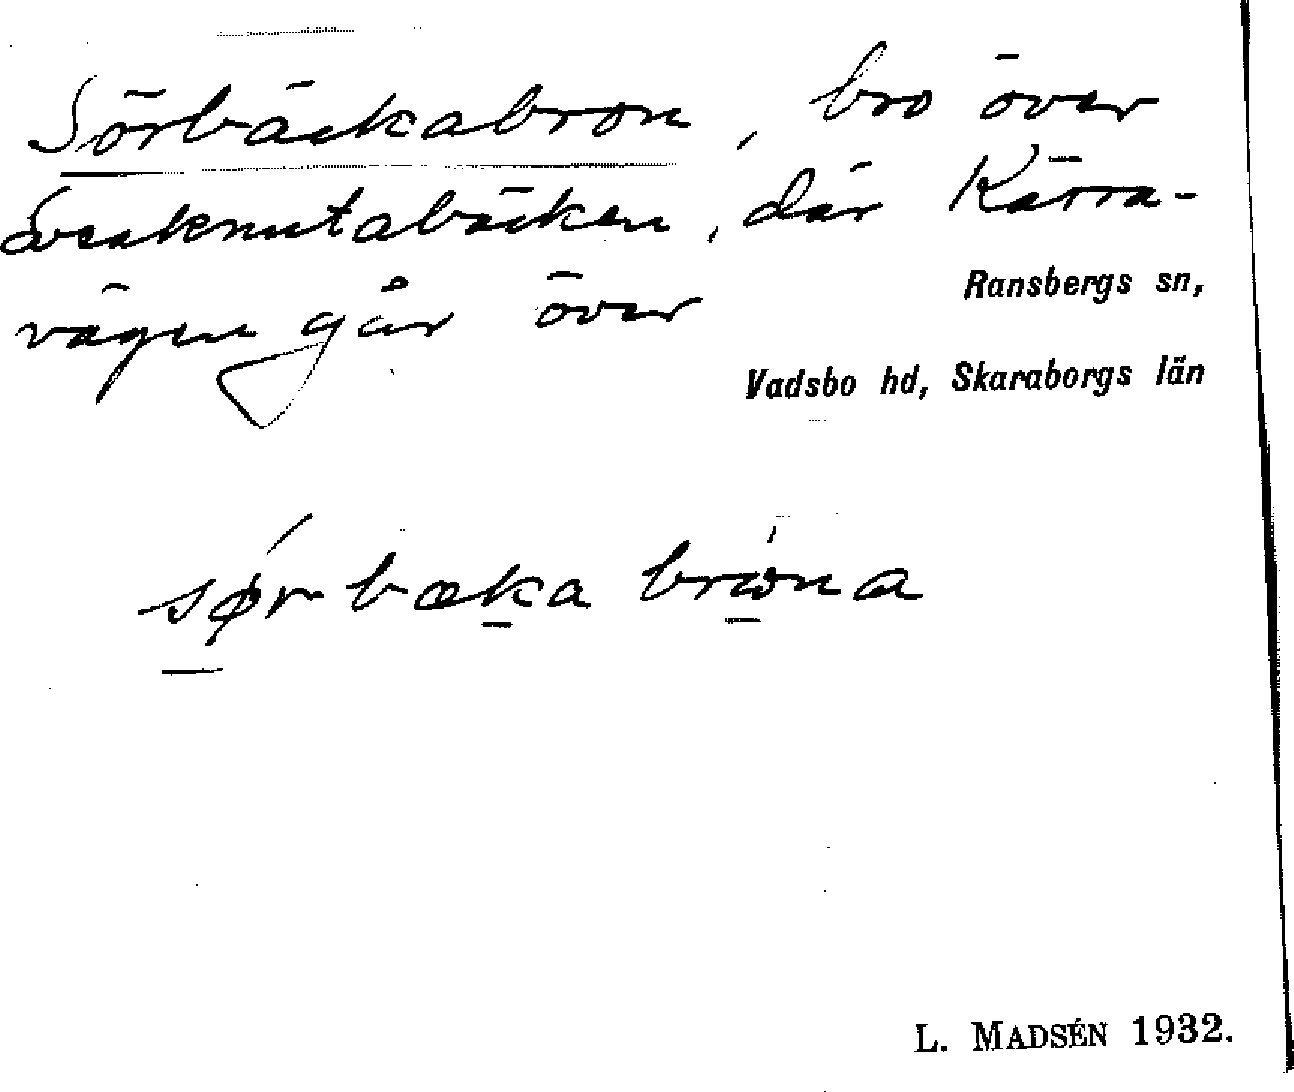 Sörbäckabron, bro över
Sveaknutabäcken, där Kärra-
vägen går över
Ransbergs sn,
Vadsbo hd, Skaraborgs län
sør bæka brωna
L. MADSÉN 1932.